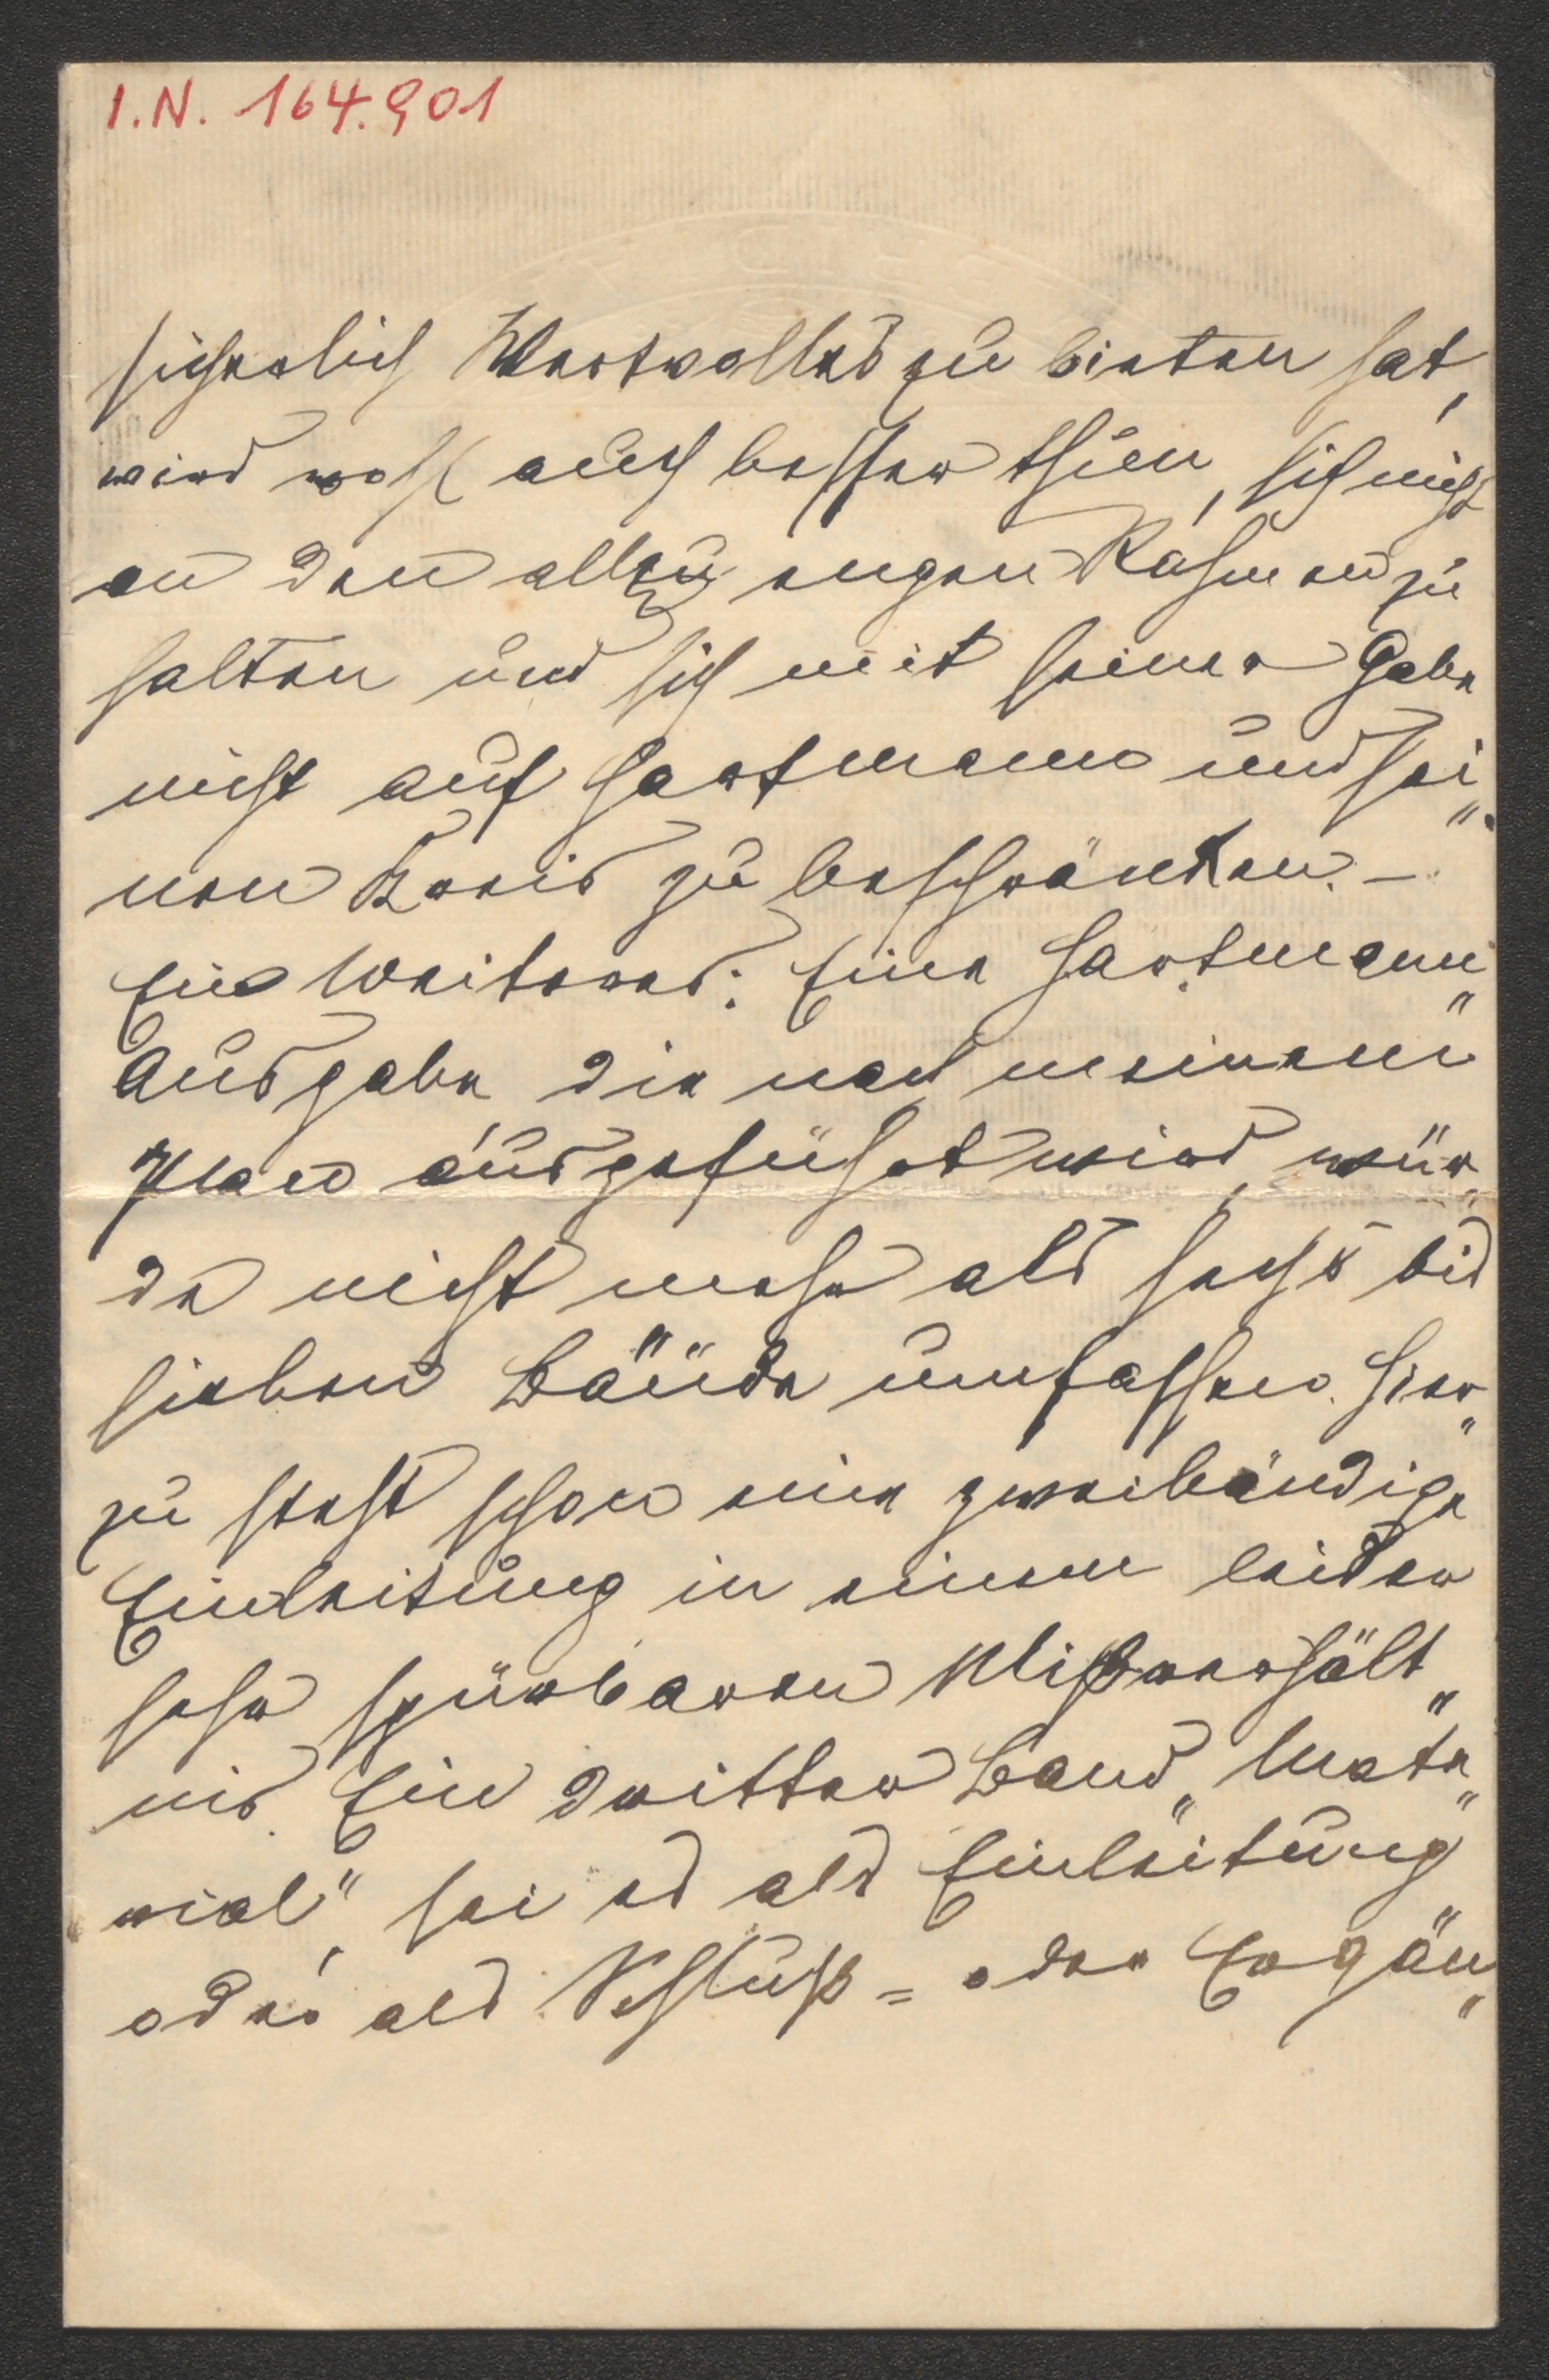 I.N. 164.901
sicherlich Wertvolles zu bieten hat,
wird wohl auch besser thun, sich nicht
an den allzu engen Rahmen zu
halten und sich mit seiner Gabe
nicht auf Hartmann und sei„
nen Kreis zu beschränken. –
Ein Weiteres: Eine Hartmann„
Ausgabe die nach meinem
Plan ausgeführt wird, wür„
de nicht mehr als sechs bis
sieben Bände umfassen. Hier„
zu steht schon eine zweibändige
Einleitung in einem leider
sehr spürbaren Mißverhält„
nis. Ein dritter Band „Mate„
rial“, sei es als Einleitung
oder als Schluß= oder Ergän„